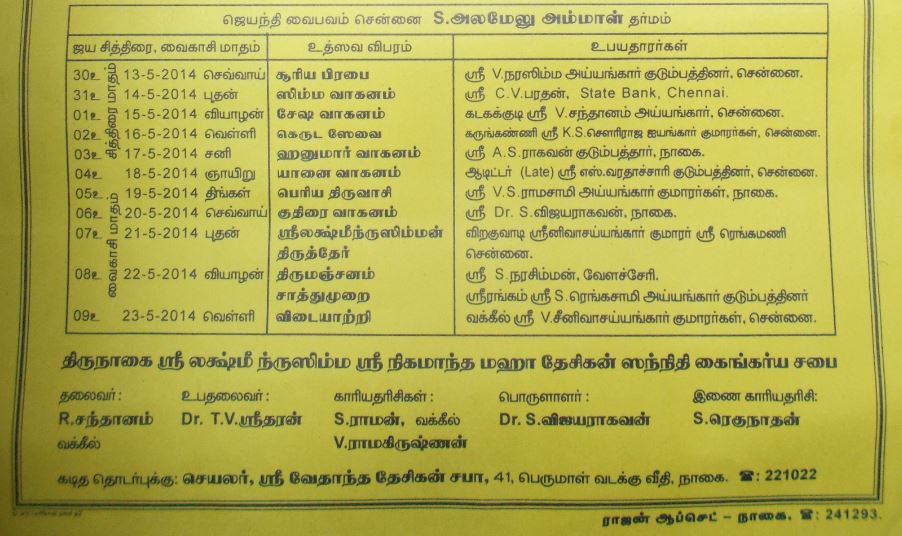 ஜெயந்தி வைபவம் சென்னை S.அலமேலு அம்மாள் தர்மம்
ஜய சித்திரை, வைகாசி மாதம் உத்ஸவ விபரம் உபயதாரர்கள்
சித்திரை மாதம்
30உ 13-5-2014 செவ்வாய் சூரிய பிரபை ஸ்ரீ V.நரஸிம்ம அய்யங்கார் குடும்பத்தினர், சென்னை.
31உ 14-5-2014 புதன் ஸிம்ம வாகனம் ஸ்ரீ C.V.பரதன், State Bank, Chennai.
01உ 15-5-2014 வியாழன் சேஷ வாகனம் கடகக்குடி ஸ்ரீ V.சந்தானம் அய்யங்கார், சென்னை.
02உ 16-5-2014 வெள்ளி கெருட ஸேவை கருங்கண்ணி ஸ்ரீ K.S.சௌரிராஜ ஐயங்கார் குமாரர்கள், சென்னை.
03உ 17-5-2014 சனி ஹனுமார் வாகனம் ஸ்ரீ A.S.ராகவன் குடும்பத்தார், நாகை.
04உ 18-5-2014 ஞாயிறு யானை வாகனம் ஆடிட்டர் (Late) ஸ்ரீ எஸ்.வரதாச்சாரி குடும்பத்தினர், சென்னை.
வைகாசி மாதம்
05உ 19-5-2014 திங்கள் பெரிய திருவாசி ஸ்ரீ V.S.ராமசாமி அய்யங்கார் குமாரர்கள், நாகை.
06உ 20-5-2014 செவ்வாய் குதிரை வாகனம் ஸ்ரீ Dr. S.விஜயராகவன், நாகை.
07உ 21-5-2014 புதன் ஸ்ரீலக்ஷ்மீந்ருஸிம்மன் விறகுவாடி ஸ்ரீனிவாசய்யங்கார் குமாரர் ஸ்ரீ ரெங்கமணி
திருத்தேர் சென்னை.
08உ 22-5-2014 வியாழன் திருமஞ்சனம் ஸ்ரீ S.நரசிம்மன், வேளச்சேரி.
சாத்துமுறை ஸ்ரீரங்கம் ஸ்ரீ S.ரெங்கசாமி அய்யங்கார் குடும்பத்தினர்
09உ 23-5-2014 வெள்ளி விடையாற்றி வக்கீல் ஸ்ரீ V.சீனிவாசய்யங்கார் குமாரர்கள், சென்னை.
திருநாகை ஸ்ரீ லக்ஷ்மீ ந்ருஸிம்ம ஸ்ரீ நிகமாந்த மஹா தேசிகன் ஸந்நிதி கைங்கர்ய சபை
தலைவர் : உபதலைவர் : காரியதரிசிகள் : பொருளாளர் : இணை காரியதரிசி:
R.சந்தானம் Dr. T.V.ஸ்ரீதரன் S.ராமன், வக்கீல் Dr. S.விஜயராகவன் S.ரெகுநாதன்
வக்கீல் V.ராமகிருஷ்ணன்
கடித தொடர்புக்கு: செயலர், ஸ்ரீ வேதாந்த தேசிகன் சபா, 41, பெருமாள் வடக்கு வீதி, நாகை. ☎: 221022
ராஜன் ஆப்செட் – நாகை, ☎: 241293.